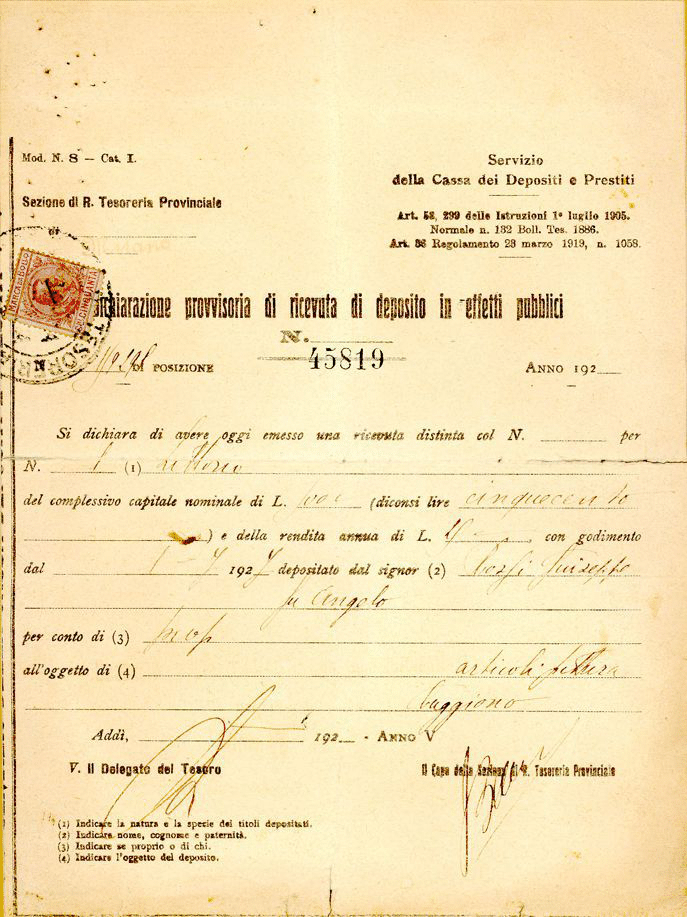 Mod. N. 8 — Cat. I.
Servizio
della Cassa dei Depositi e Prestiti
Sezione di R. Tesoreria Provinciale
di
Art. 58, 299 delle Istruzioni 1º luglio 1905.
Normale n. 132 Boll. Tes. 1886.
Art. 38 Regolamento 23 marzo 1919, n. 1058.
MARCA DA BOLLO
CINQUANTA
TESORER
chiarazione provvisoria di ricevuta di deposito in effetti pubblici
N.
45819
DI POSIZIONE
ANNO 192
Si dichiara di avere oggi emesso una ricevuta distinta col N. per
N. 1 (1) Littorio
del complessivo capitale nominale di L. 500 (diconsi lire cinquecento
) e della rendita annua di L. con godimento
dal 1 - 7 1927 depositato dal signor (2) Giuseppe
fu Angelo
per conto di (3) prop
all'oggetto di (4) articoli
Addì, 192 - ANNO V
V. Il Delegato del Tesoro
Il Capo della Sezione di R. Tesoreria Provinciale
(1) Indicare la natura e la specie dei titoli depositati.
(2) Indicare nome, cognome e paternità.
(3) Indicare se proprio o di chi.
(4) Indicare l'oggetto del deposito.